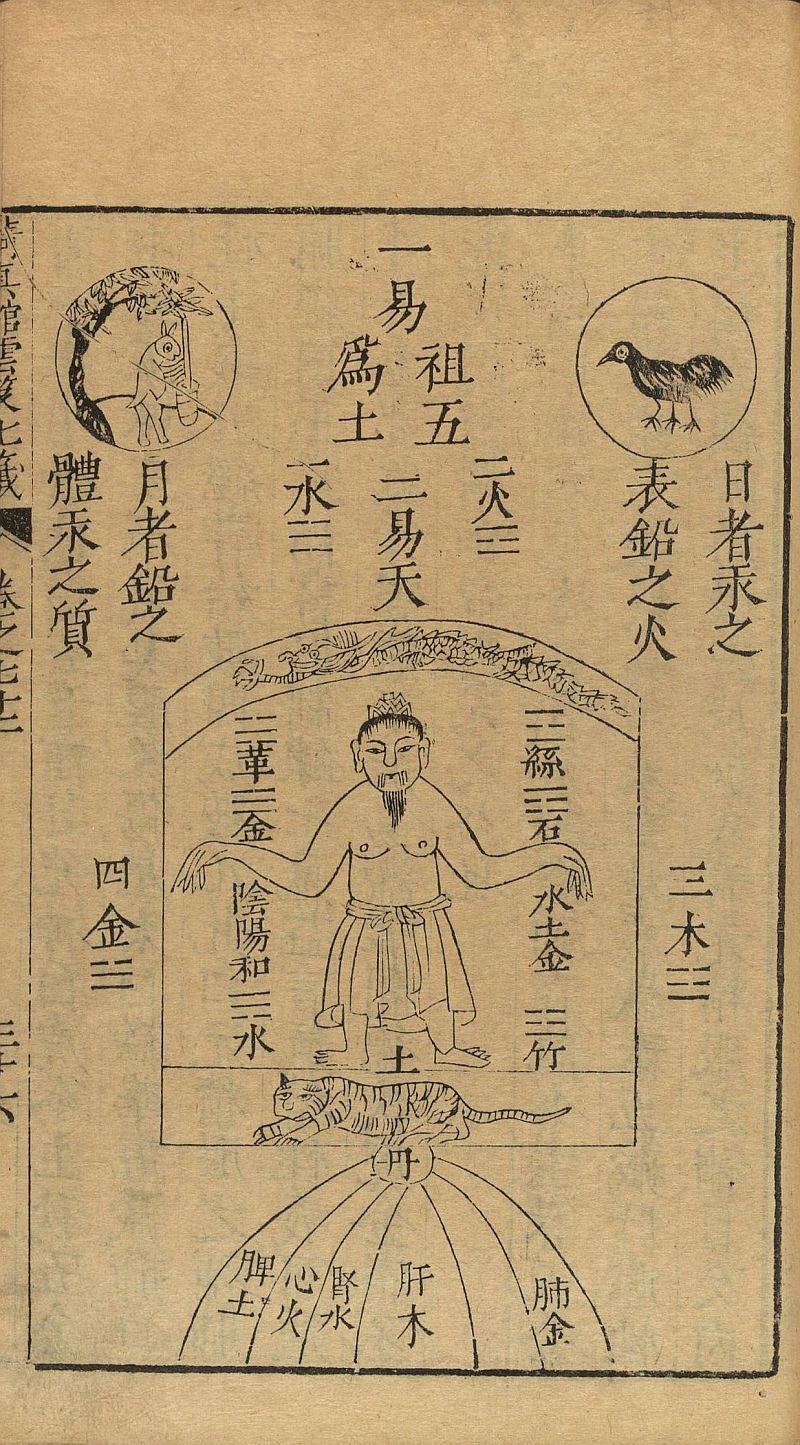 日者汞之
表鉛之火
一易
祖五
爲土
二火
二易天
一水
月者鉛之
體汞之質
三木
絲
石
水土金
竹
革
金
陰陽和
水
土
四金
丹
肺金
肝木
腎水
心火
脾土
真館雲笈七籤
卷之七十二
三十六